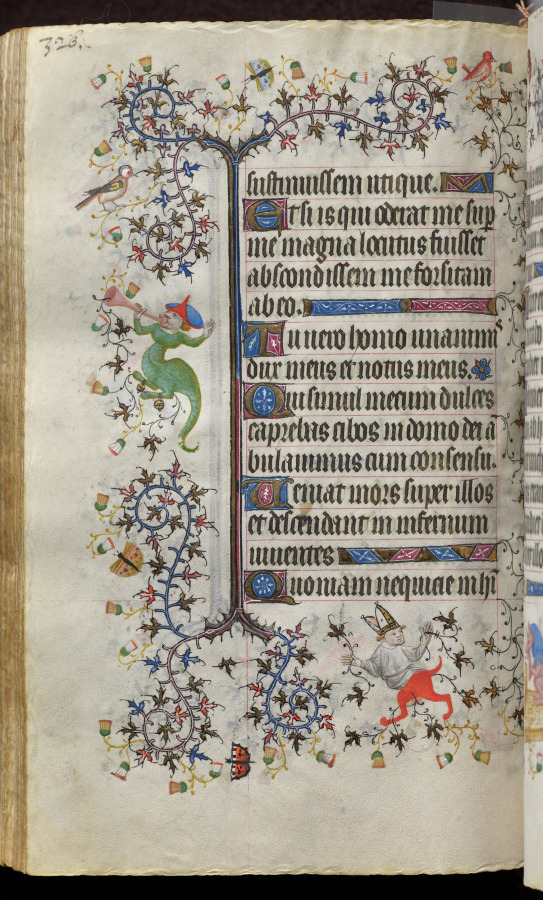 328.
sustinuissem utique.
Et si is qui oderat me sup
me magna locutus fuisset
abscondissem me forsitam
ab eo.
Tu uero homo unanimis
dux meus et notus meus.
Qui simul mecum dulces
capiebas cibos in domo dei a
bulauimus cum consensu.
Ueniat mors super illos
et descendant in infernum
uiuentes
Quoniam nequicie in hi